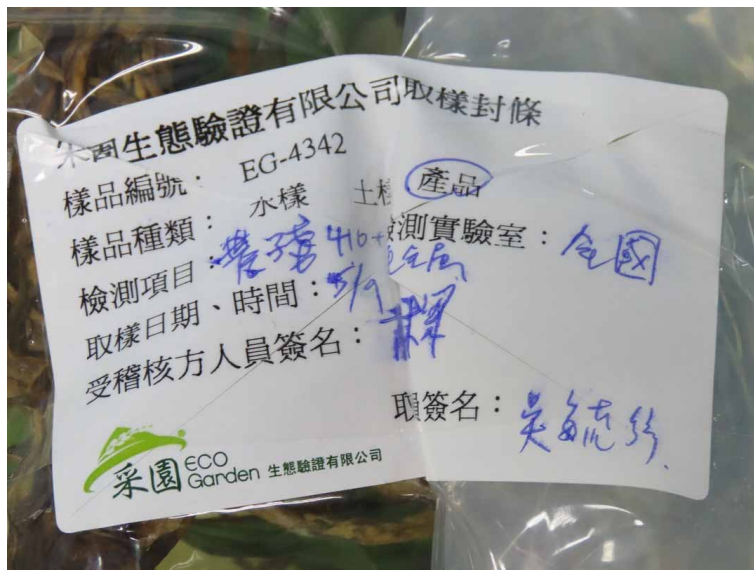 采園生態驗證有限公司取樣封條
樣品編號： EG-4342
樣品種類： 水樣 土樣 產品
檢測項目：農殘410+重金屬 檢測實驗室：全國
取樣日期、時間：5/9
受稽核方人員簽名：
簽名：吳毓
采園 ECO Garden 生態驗證有限公司